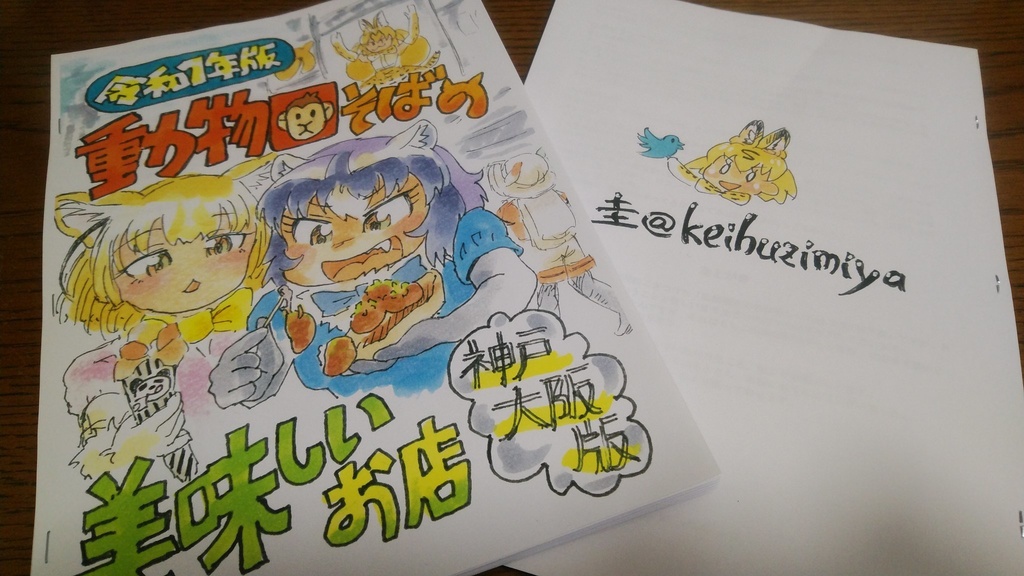 令和1年版
動物園そばの
美味しい
お店
神戸
大阪
版
圭@keihuzimiya